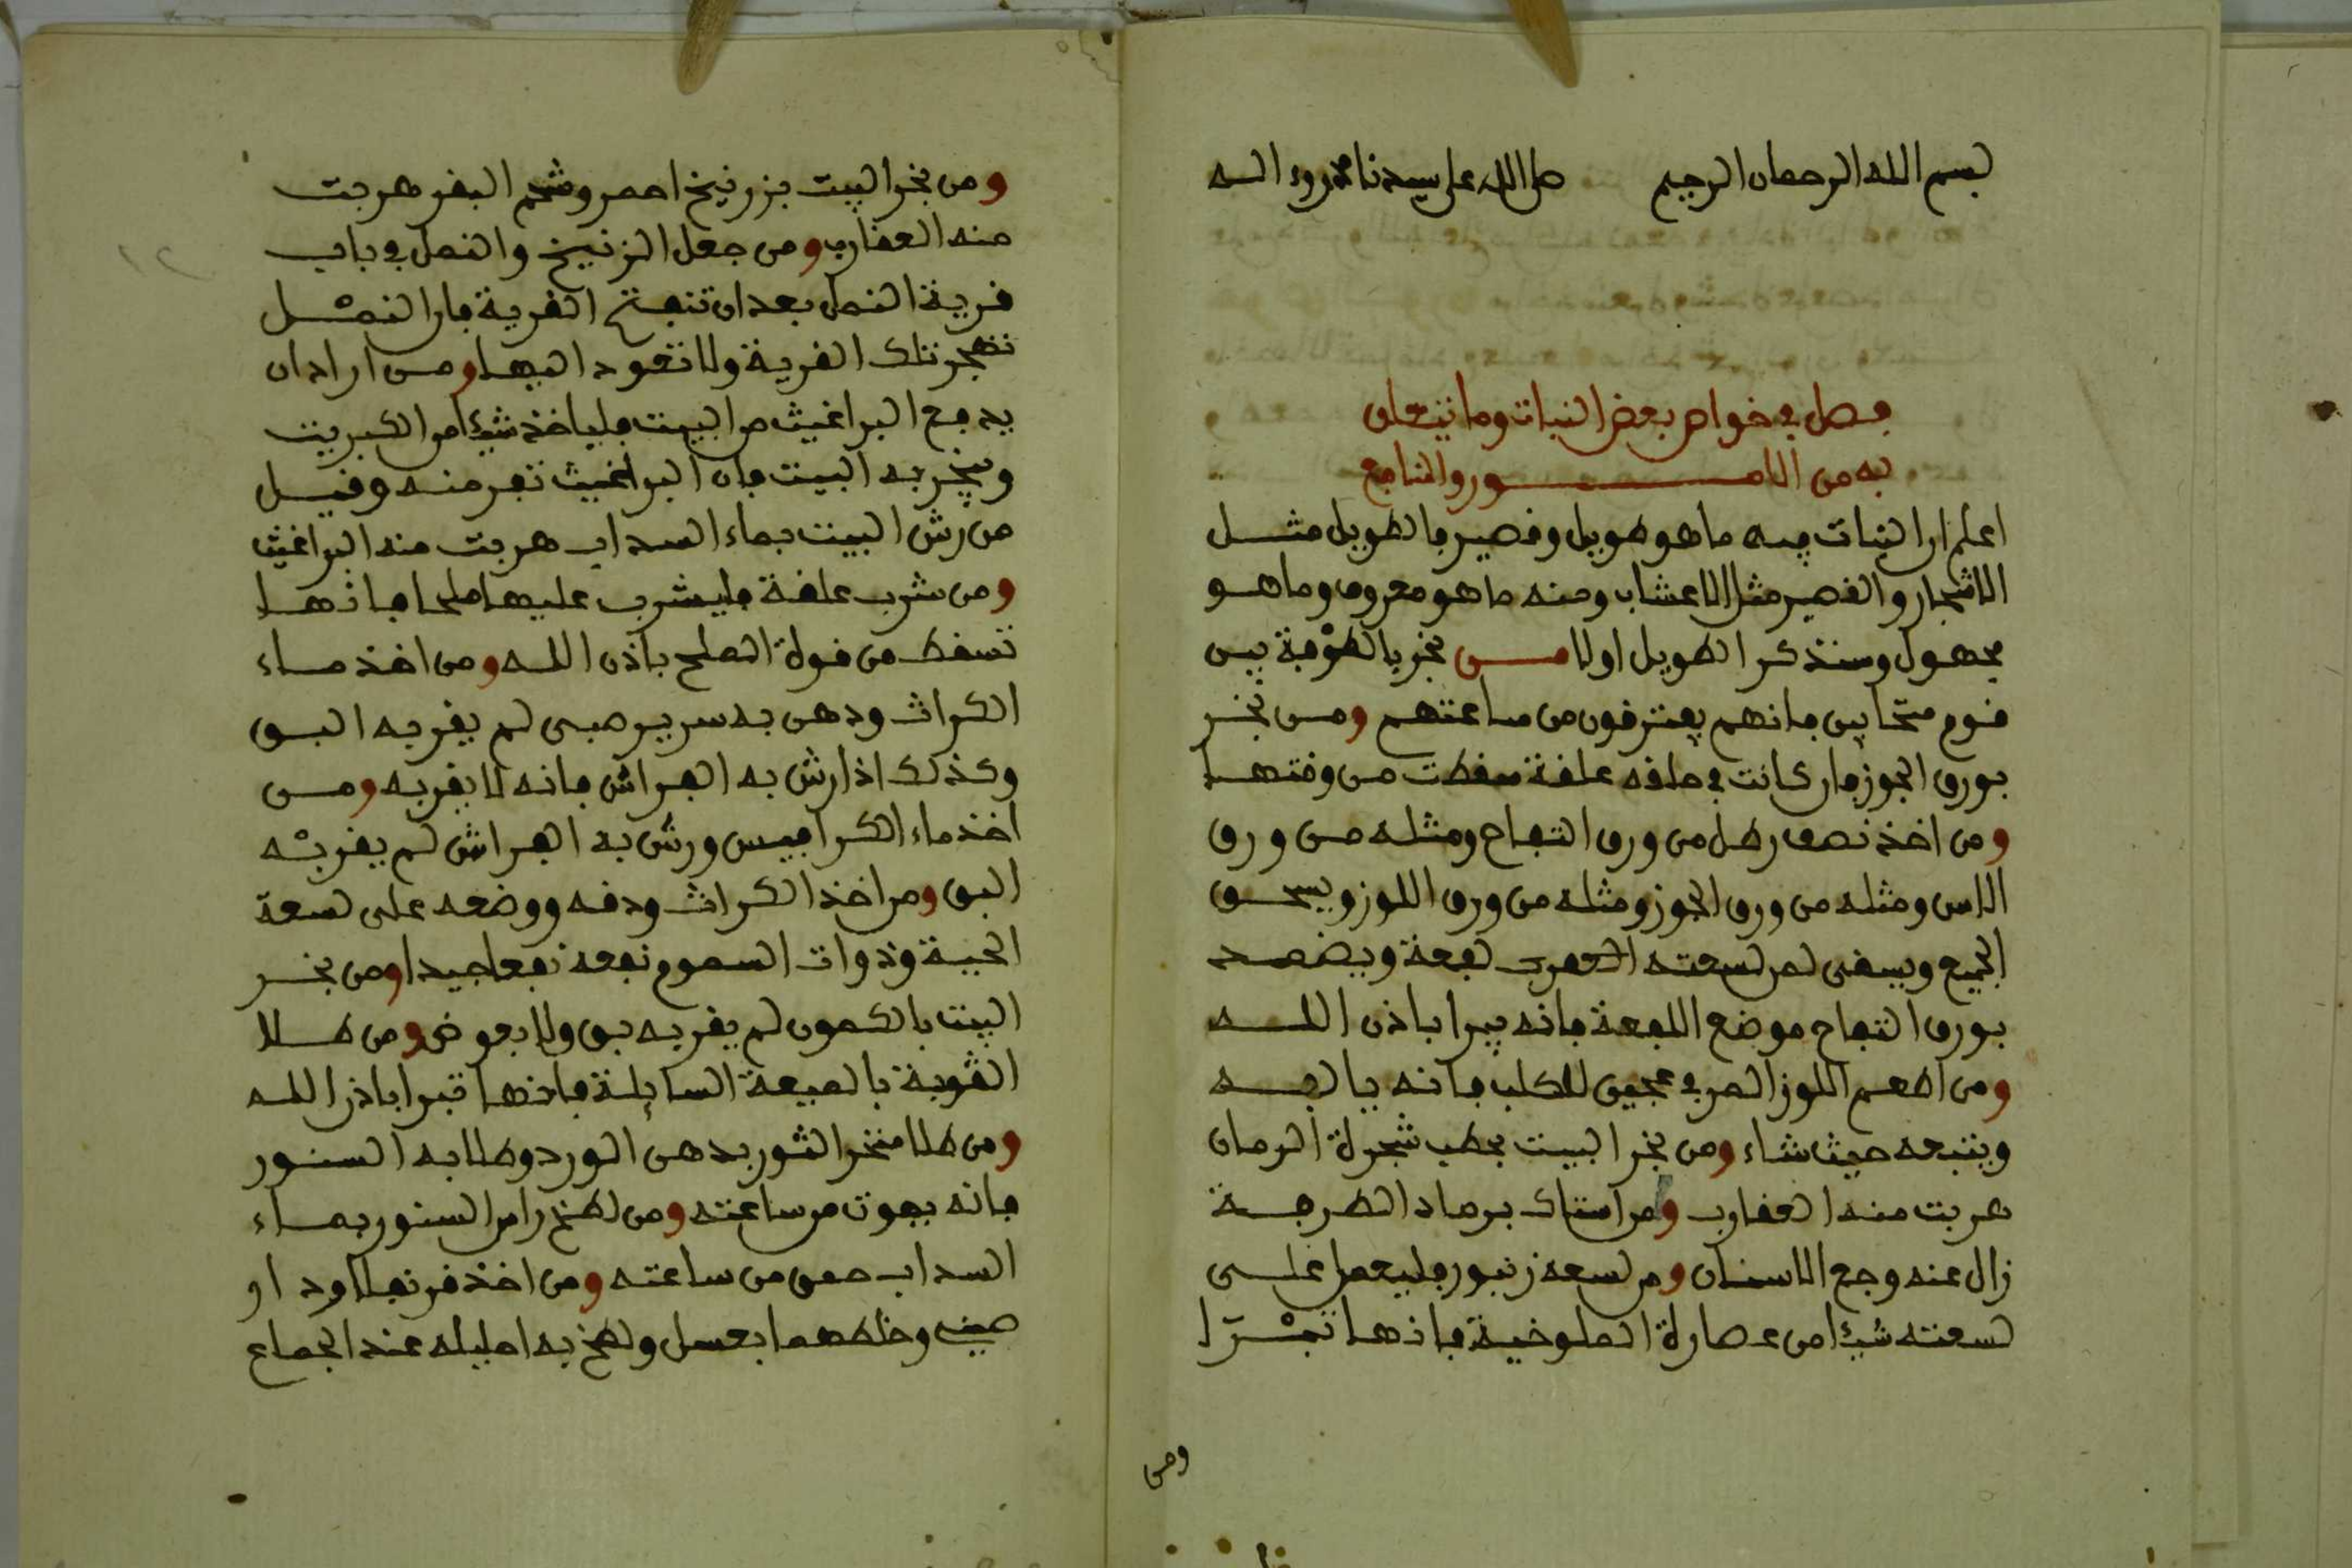 بسم الله الرحمان الرحيم صلى الله على سيدنا محمد وءاله
فصل في خواص بعض النبات وما يتعلق
به من الامور والمنافع
اعلم ان النبات فيه ما هو طويل وقصير فالطويل مثل
الاشجار والقصير مثل الاعشاب ومنه ما هو معروف وما هو
مجهول وسنذكر الطويل اولا من بخر بالطرفة بين
قوم متحابين فانهم يفترقون من ساعتهم ومن بخر
بورق الجوز فان كانت في حلقه علقة سقطت من وقتها
ومن اخذ نصف رطل من ورق التفاح ومثله من ورق
الاس ومثله من ورق الجوز ومثله من ورق اللوز ويسحق
الجميع ويسقى لمن لسعته العقرب لفعة ويضمد
بورق التفاح موضع اللفعة فانه يبرا باذن الله
ومن اطعم اللوز المر في عجين للكلب فانه يالفه
ويتبعه حيث شاء ومن بخر البيت بحطب شجرة الرمان
هربت منه العقارب ومن استاك برماد الطرفة
زال عنه وجع الاسنان ومن لسعه زنبور فليعمل على
لسعته شيئا من عصارة الملوخية فانها تبرا
ومن
ومن بخر البيت بزرنيخ احمر وشحم البقر هربت
منه العقارب ومن جعل الزرنيخ والنمل في باب
قرية النمل بعد ان تفتح القرية فان النمل
تهجر تلك القرية ولا تعود اليها ومن اراد ان
يدفع البراغيث من البيت فلياخذ شيئا من الكبريت
ويبخر به البيت فان البراغيث تفر منه وقيل
من رش البيت بماء السداب هربت منه البراغيث
ومن شرب علقة فليشرب عليها ملحا فانها
تسقط من قوة الملح باذن الله ومن اخذ ماء
الكراث ودهن به سرير صبي لم يقربه البق
وكذلك اذا رش به الفراش فانه لا يقربه ومن
اخذ ماء الكرافيس ورش به الفراش لم يقربه
البق ومن اخذ الكراث ودقه ووضعه على لسعة
الحية وذوات السموم نفعه نفعا جيدا ومن بخر
البيت بالكمون لم يقربه بق ولا بعوض ومن طلا
القوبة بالميعة السايلة فانها تبرا باذن الله
ومن طلا منخر الثور بدهن الورد وطلا به السنور
فانه يموت من ساعته ومن لطخ راس السنور بماء
السداب حمق من ساعته ومن اخذ قرنفلا ود او
صيني وخلطهما بعسل ولطخ به احليله عند الجماع